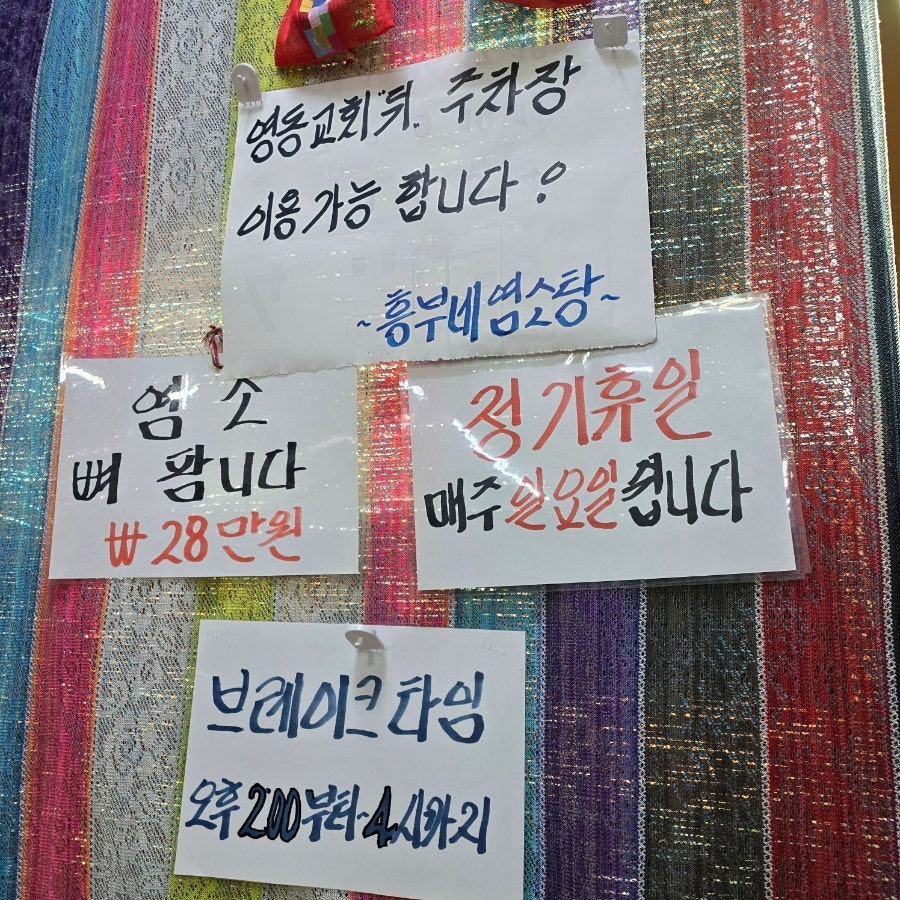 영동교회"뒤" 주차장
이용가능 합니다!
~흥부네염소탕~
염소
뼈 팜니다
₩28만원
정기휴일
매주일요일쉽니다
브레이크타임
오후2:00부터~4시까지